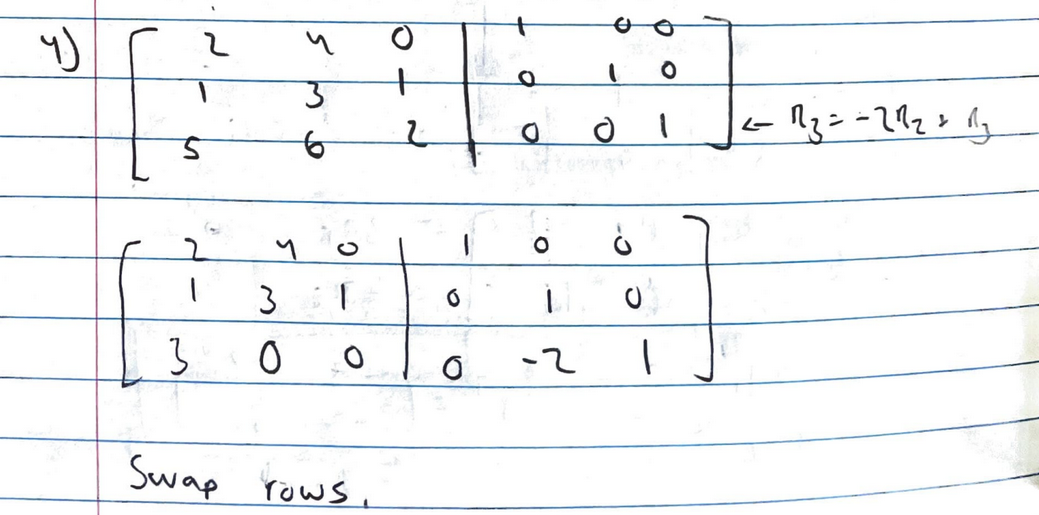 4) [ 2 4 0 | 1 0 0 ]
1 3 1 | 0 1 0
5 6 2 | 0 0 1 ← R3 = -2R2 + R3
[ 2 4 0 | 1 0 0 ]
1 3 1 | 0 1 0
3 0 0 | 0 -2 1
Swap rows.